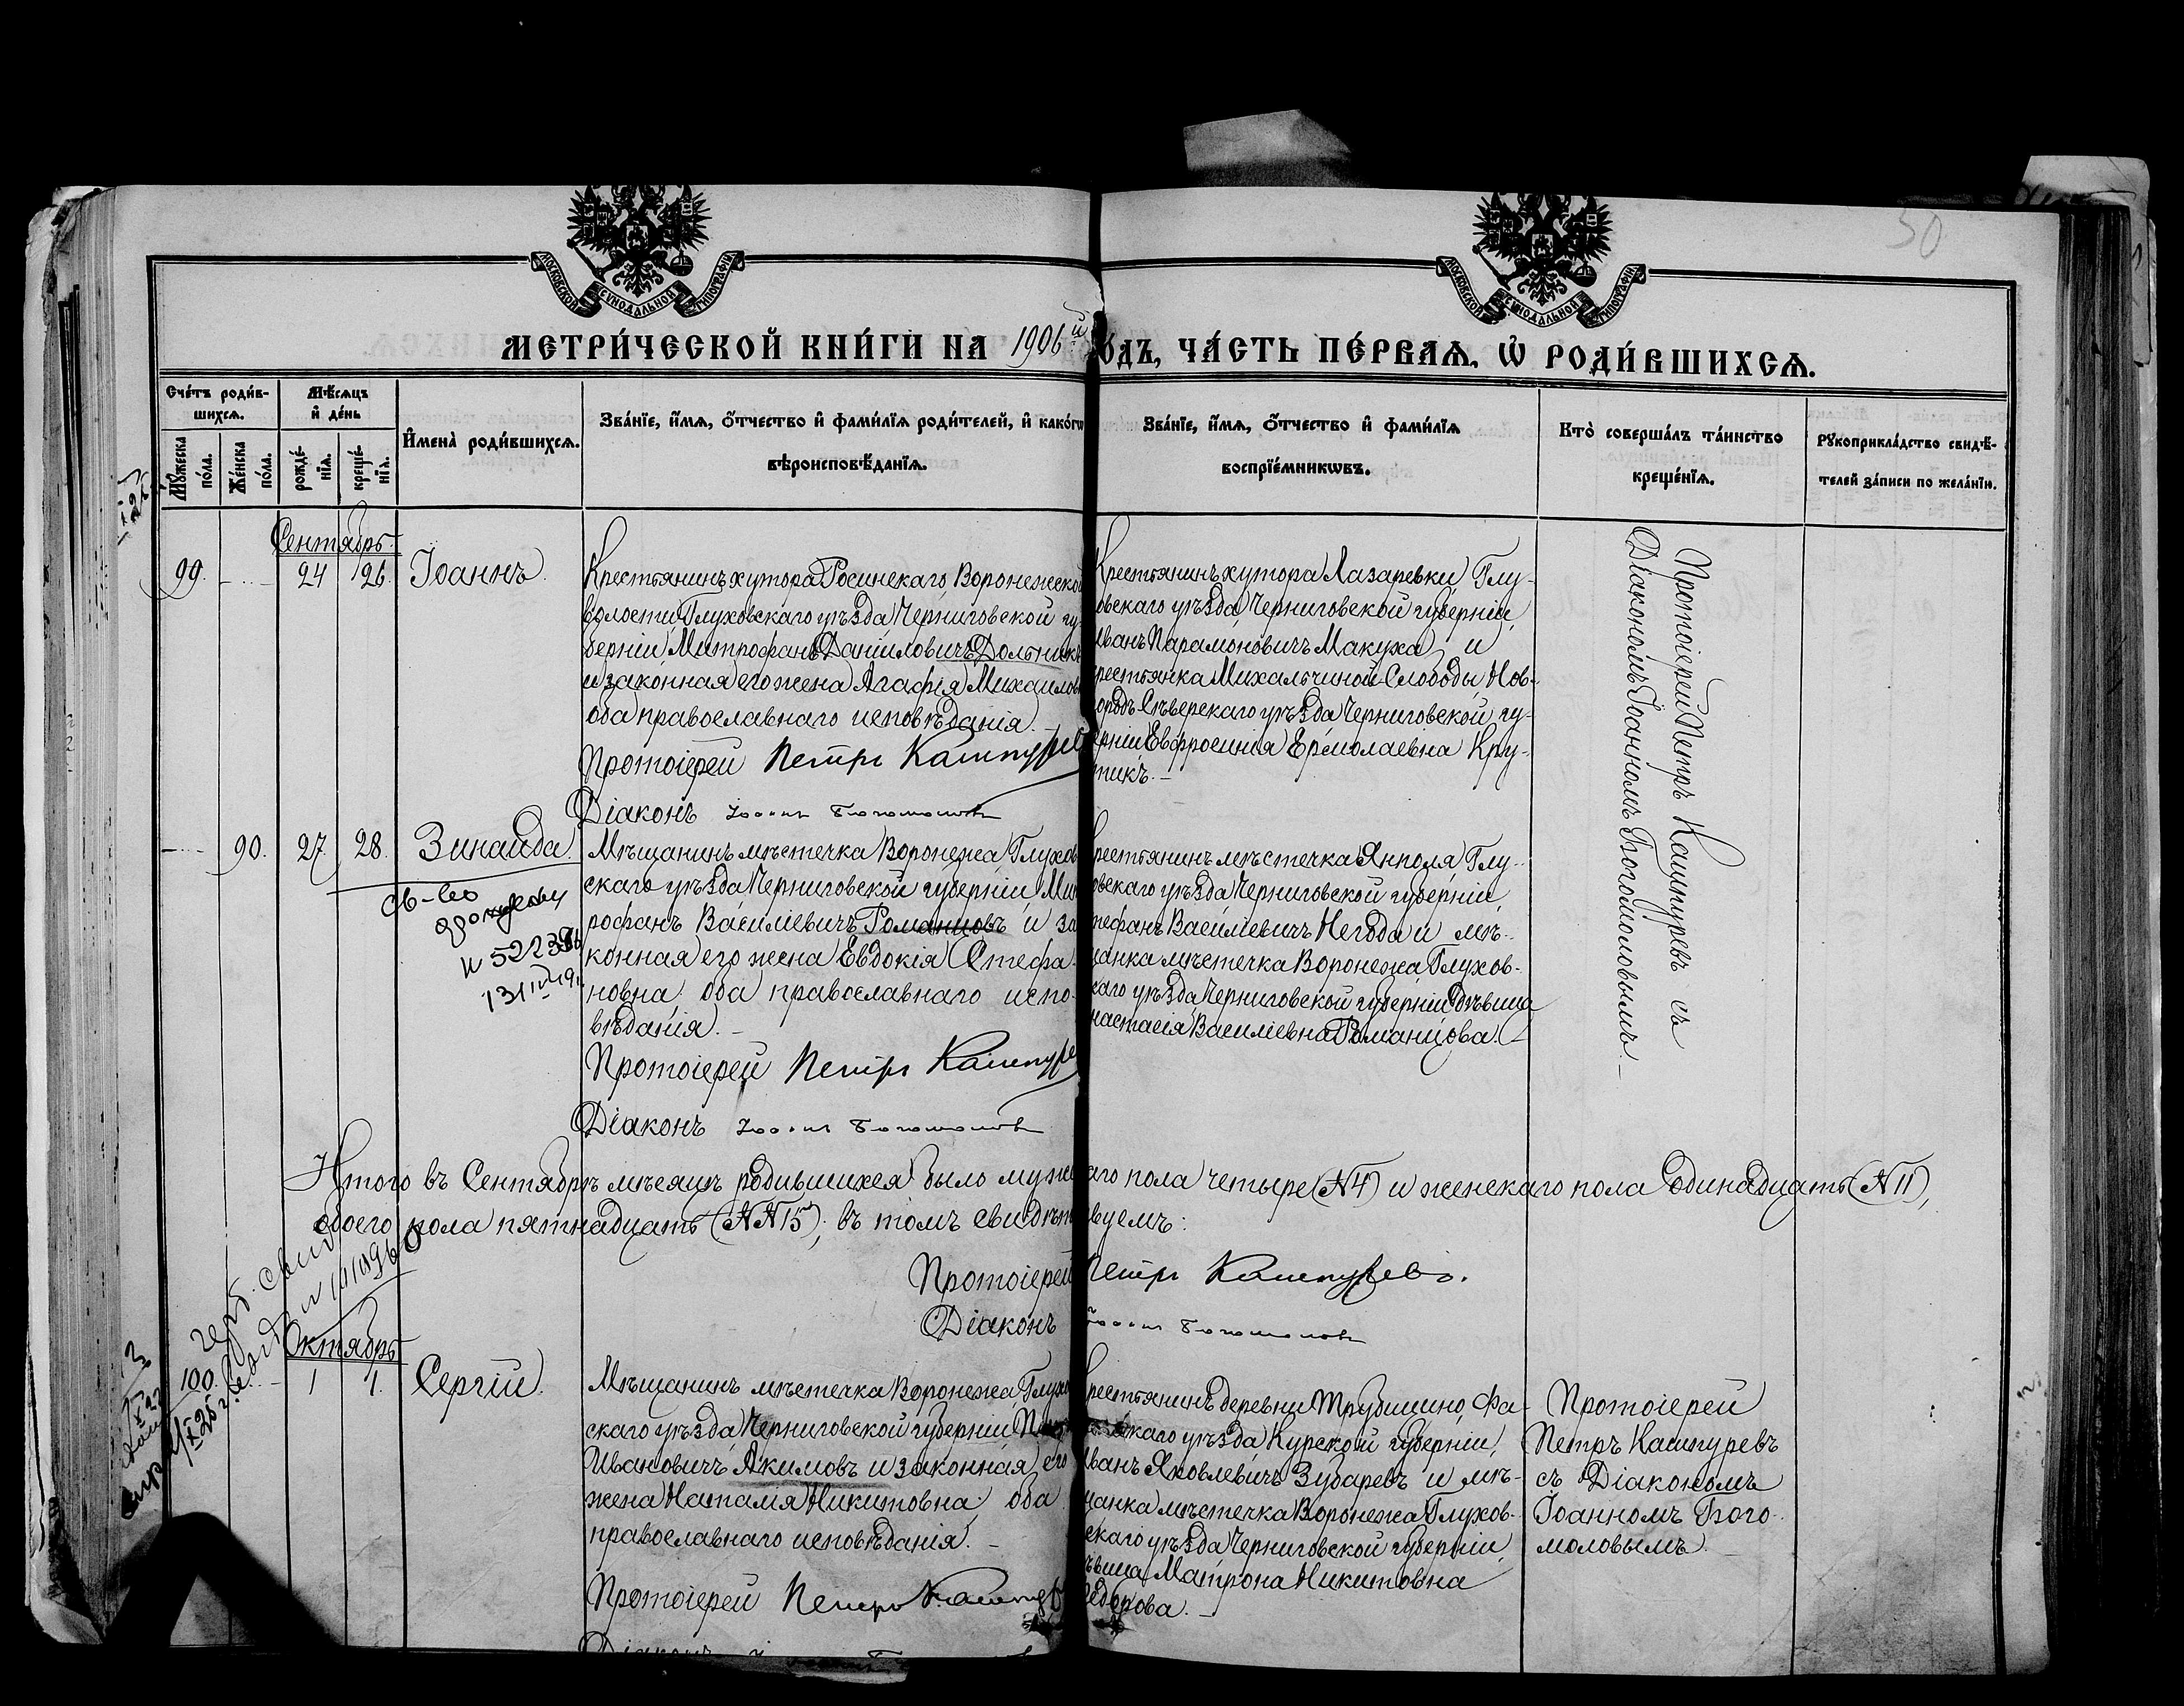 50
МОСКОВСКОЙ СѴНОДАЛЬНОЙ ТИПОГРАФІИ
МОСКОВСКОЙ СѴНОДАЛЬНОЙ ТИПОГРАФІИ
МЕТРИ́ЧЕСКОЙ КНИ́ГИ НА 1906й
ОДЪ, ЧА́СТЬ ПЕ́РВАѦ, Ѽ РОДИ́ВШИХСѦ.
Сче́тъ роди́в-
шихсѧ.
Мѣ́сѧцъ
и҆ де́нь
Мꙋ́жеска
по́ла.
Же́нска
по́ла.
рожде́-
нїѧ.
креще́-
нїѧ.
И҆мена̀ роди́вшихсѧ.
Зва́нїе, и҆́мѧ, ѻ҆́тчество и҆ фами́лїѧ роди́телей, и҆ како́гѡ
вѣроисповѣ́данїѧ.
Зва́нїе, и҆́мѧ, ѻ҆́тчество и҆ фами́лїѧ
воспрїе́мникѡвъ.
Кто̀ соверша́лъ та́инство
креще́нїѧ.
Рꙋкоприкла́дство свидѣ́-
телей за́писи по жела́нїю.
Сентябрь
99. - 24 26. Іоаннъ.
Крестьянинъ хутора Росинскаго, Воронежской
волости Глуховскаго уѣзда Черниговской гу-
берніи Митрофанъ Даніиловичъ Дольникъ
и законная его жена Агафія Михаилов
оба православнаго исповѣданія. -
Протоіерей Петръ Кашпурев
Діаконъ Іоаннъ Богомоловъ
Крестьянинъ хутора Лазаревки, Глу-
овскаго уѣзда Черниговской губерніи,
Иванъ Парамоновичъ Макуха и
крестьянка Михальчиной-Слободы, Нов-
ородъ-Сѣверскаго уѣзда Черниговской гу-
ерніи Евфросинія Ермолаевна Кру-
тикъ. -
Протоіерей Петръ Кашпуревъ съ
Діакономъ Іоанномъ Богомоловымъ. -
- 90. 27. 28. Зинаида.
св-во
13/IV
Мѣщанинъ мѣстечка Воронежа, Глухов
скаго уѣзда Черниговской губерніи Мит
рофанъ Василіевичъ Романцовъ и за
конная его жена Евдокія Стефа-
новна, оба православнаго испо-
вѣданія. -
Протоіерей Петръ Кашпуре
Діаконъ Іоаннъ Богомоловъ
рестьянинъ мѣстечка Янполя, Глу-
овскаго уѣзда Черниговской губерніи,
тефанъ Василіевичъ Негода и мѣ-
щанка мѣстечка Воронежа Глухов-
скаго уѣзда Черниговской губерніи дѣвица
настасія Василіевна Романцова. -
Итого въ Сентябрѣ мѣсяцѣ родившихся было муже
скаго пола четыре (№4) и женскаго пола одинадцать (№11),
обоего пола пятнадцать (№№15); въ томъ свидѣт
вуемъ:
Протоіерей Петръ Кашпуревъ.
Діаконъ Іоаннъ Богомоловъ
Октябрь
100. - 1 1. Сергій.
Мѣщанинъ мѣстечка Воронежа, Глухо
скаго уѣзда Черниговской губерніи,
Ивановичъ Акимовъ и законная его
жена Наталія Никитовна, оба
православнаго исповѣданія. -
Протоіерей Петръ Кашпурев
рестьянинъ деревни Трубишино, Фа-
скаго уѣзда Курской губерніи,
Иванъ Яковлевичъ Зубаревъ и мѣ-
щанка мѣстечка Воронежа Глухов-
скаго уѣзда Черниговской губерніи,
дѣвица Матрона Никитовна
едорова. -
Протоіерей
Петръ Кашпуревъ
съ Діакономъ
Іоанномъ Бого-
моловымъ. -